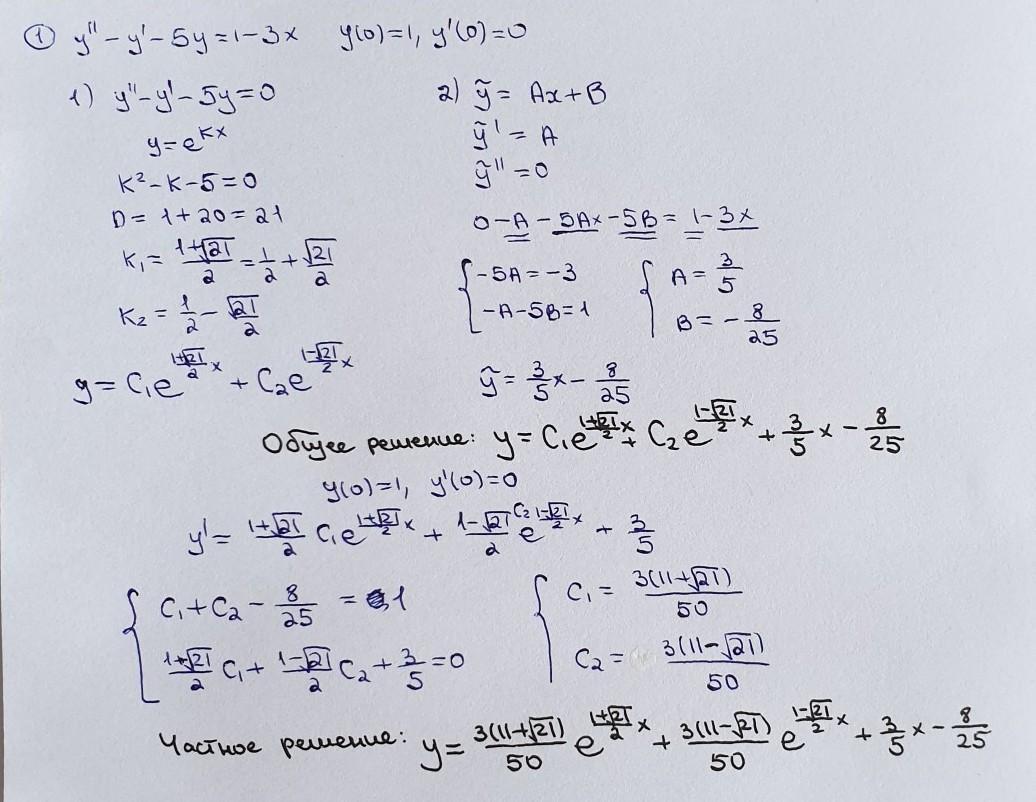 ① y'' - y' - 5y = 1 - 3x y(0)=1, y'(0)=0
1) y'' - y' - 5y = 0
y = e^{kx}
k² - k - 5 = 0
D = 1 + 20 = 21
k₁ = (1+√21)/2 = 1/2 + √21/2
k₂ = 1/2 - √21/2
y = C₁e^{(1+√21)/2 x} + C₂e^{(1-√21)/2 x}
2) ỹ = Ax + B
ỹ' = A
ỹ'' = 0
0 - A - 5Ax - 5B = 1 - 3x
{ -5A = -3 { A = 3/5
-A - 5B = 1 B = -8/25
ỹ = 3/5 x - 8/25
Общее решение: y = C₁e^{(1+√21)/2 x} + C₂e^{(1-√21)/2 x} + 3/5 x - 8/25
y(0)=1, y'(0)=0
y' = (1+√21)/2 C₁e^{(1+√21)/2 x} + (1-√21)/2 C₂ e^{(1-√21)/2 x} + 3/5
{ C₁ + C₂ - 8/25 = 1 { C₁ = 3(11+√21)/50
(1+√21)/2 C₁ + (1-√21)/2 C₂ + 3/5 = 0 C₂ = 3(11-√21)/50
Частное решение: y = 3(11+√21)/50 e^{(1+√21)/2 x} + 3(11-√21)/50 e^{(1-√21)/2 x} + 3/5 x - 8/25